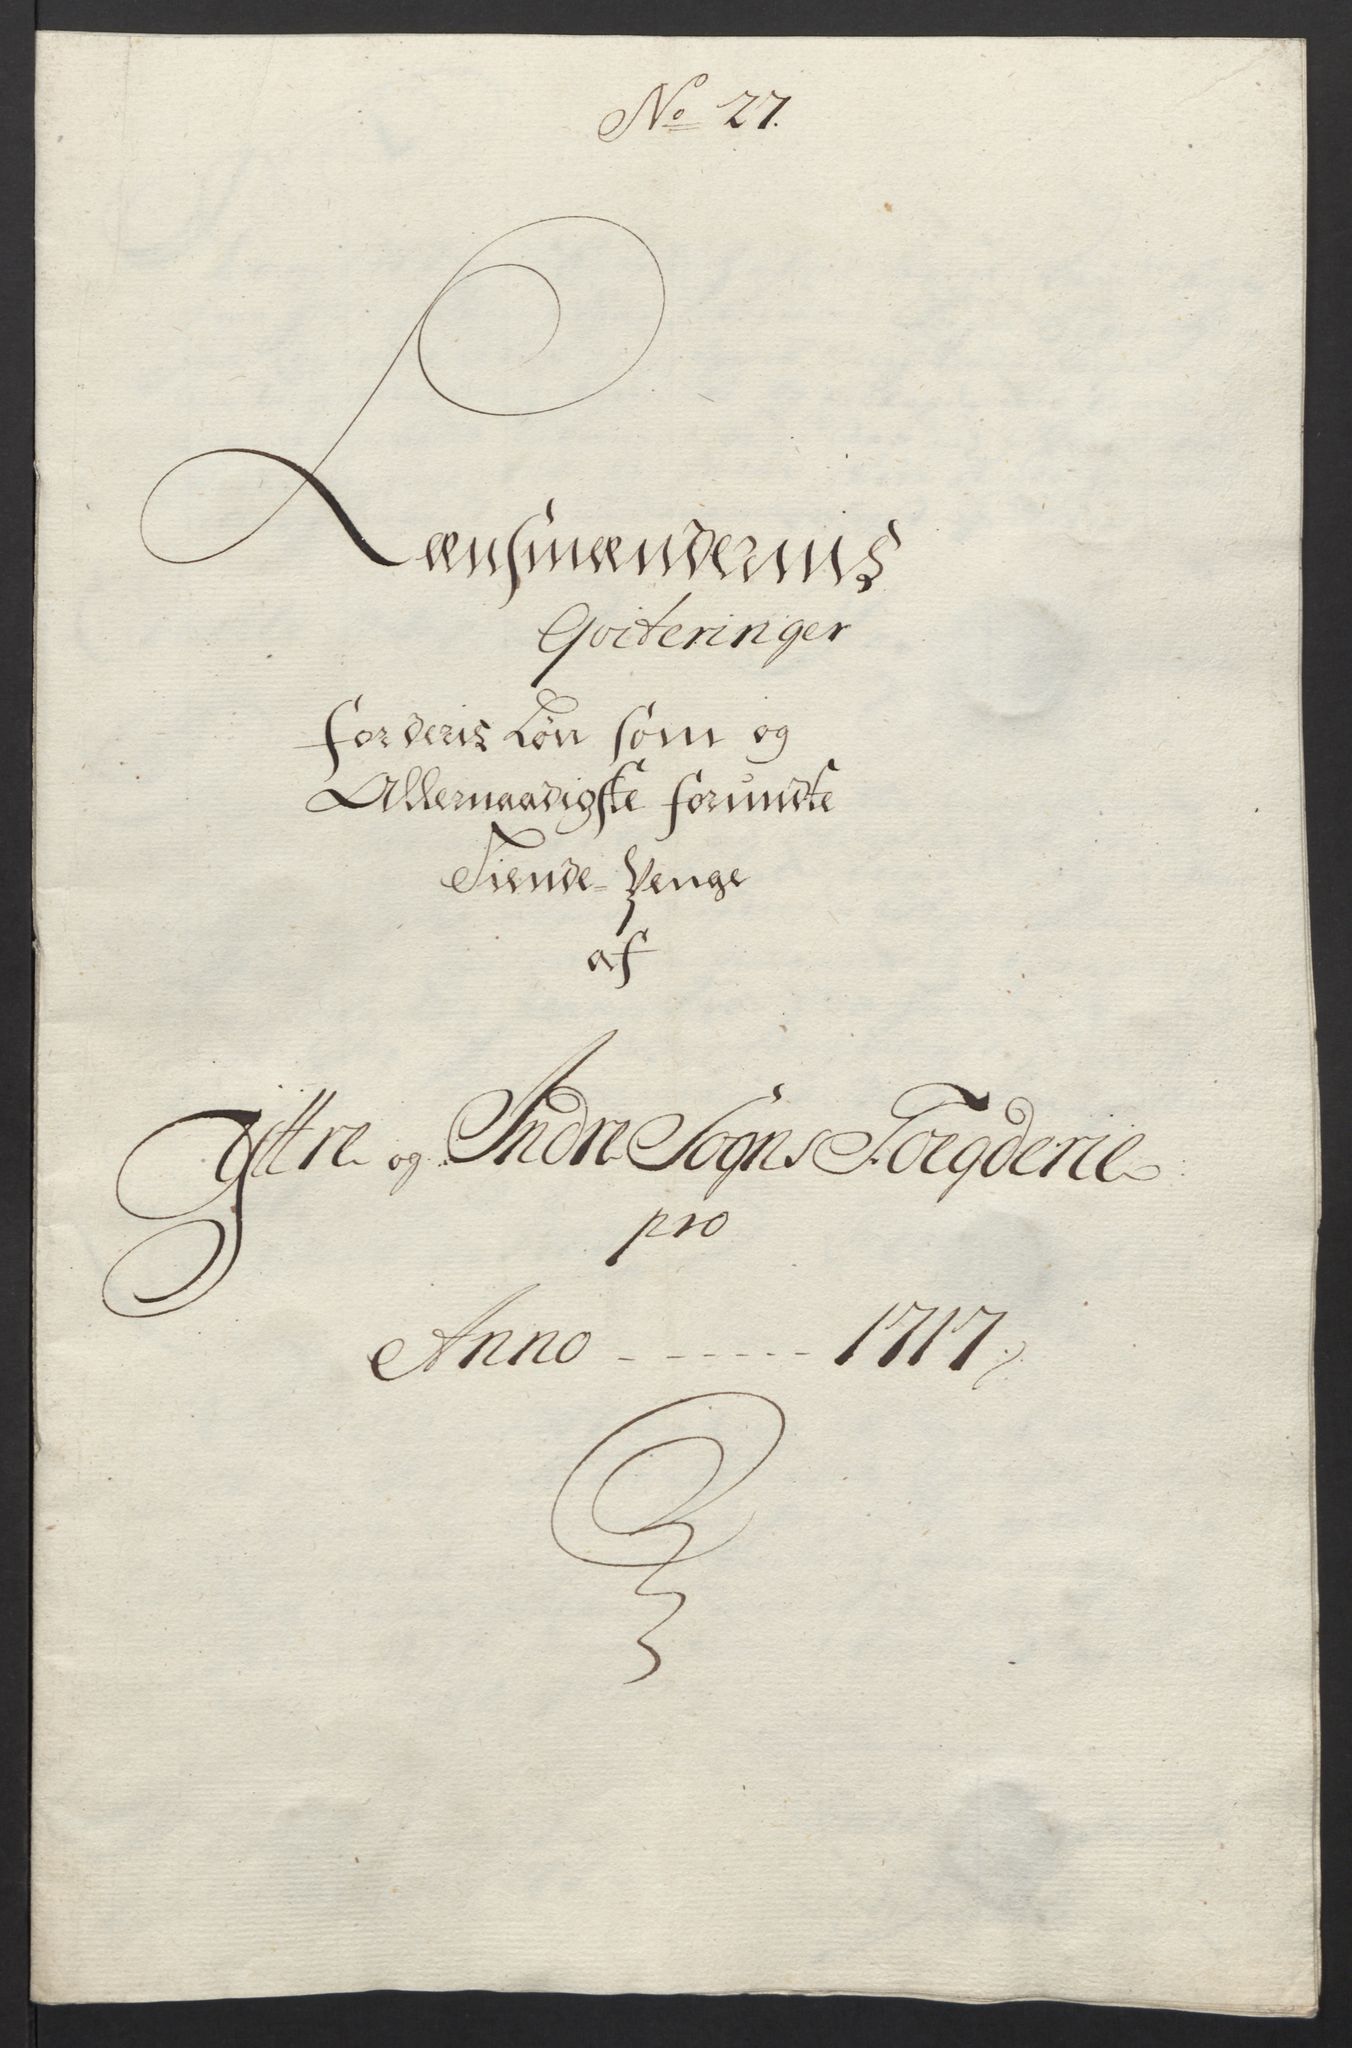 No 27.
Lænsmændernis
Qviteringer
for deris Løn som og
Allernaadigste forundte
Tiende-Penge
af
Yttre og Indre Sogns Foegderie
pro
Anno ------ 1717